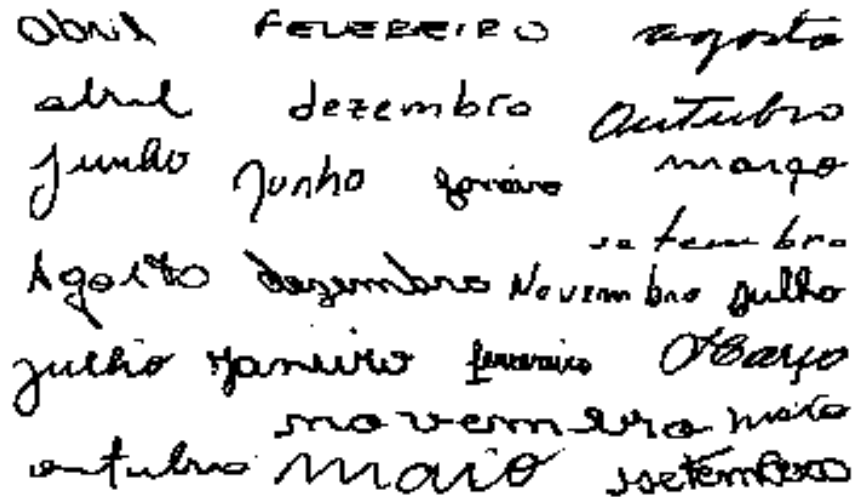 abril FEVEREIRO agosto
abril dezembro outubro
junho junho janeiro março
setembro
Agosto dezembro Novembro julho
julho janeiro fevereiro Março
novembro maio
outubro maio setembro